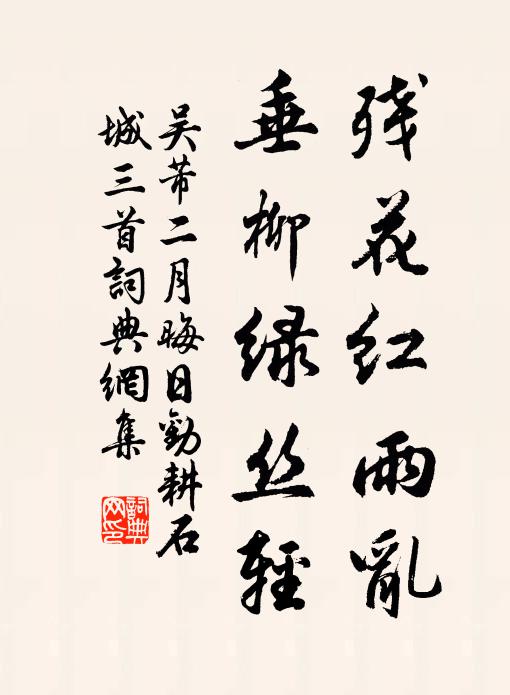 残花红雨亂
垂柳绿丝輕
吴芾二月晦日勸耕石
城三首詞典網集
詞典
网印